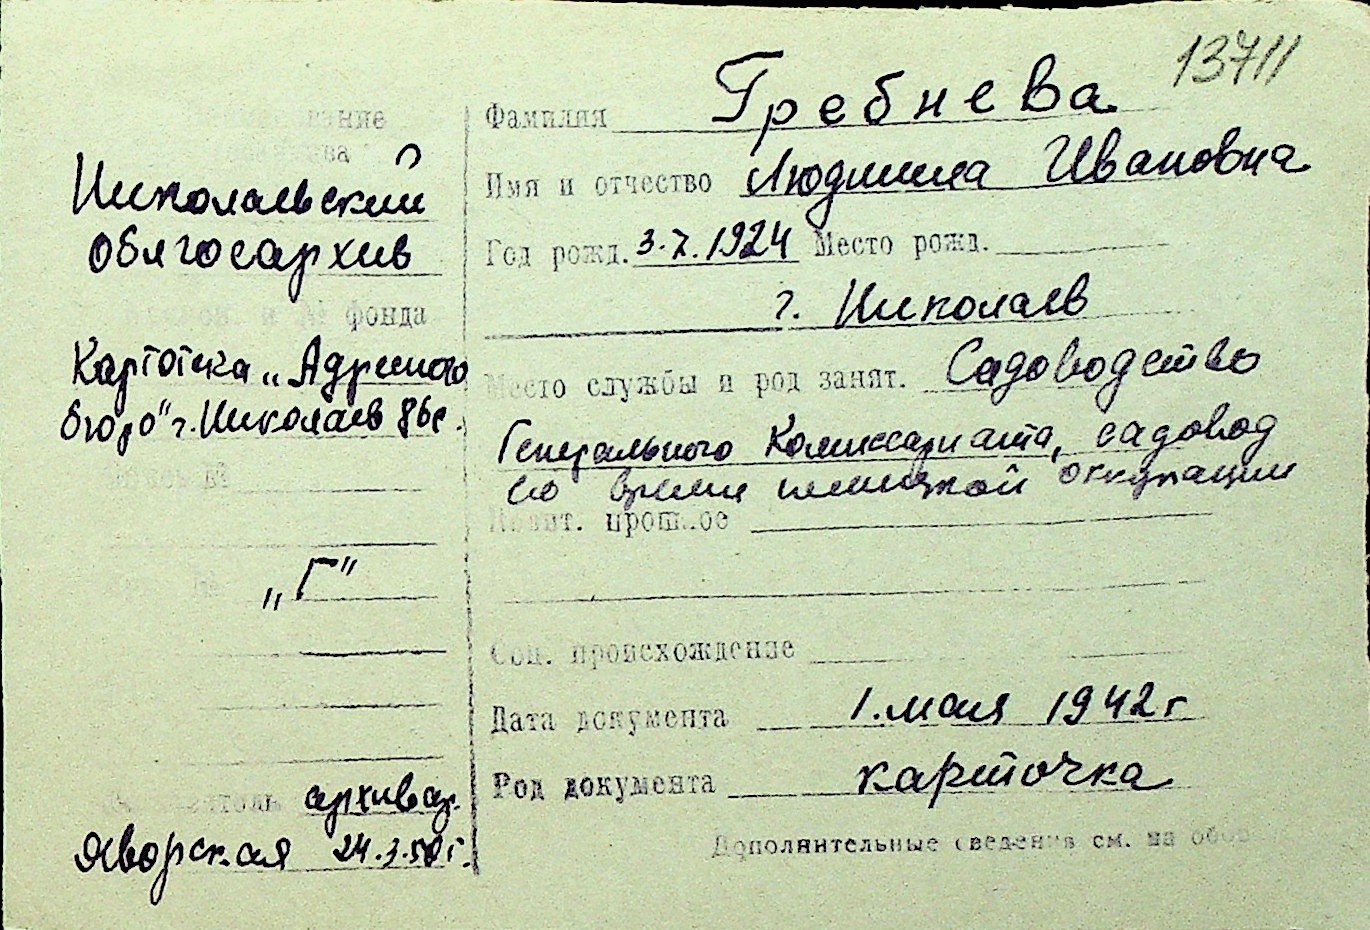 13711
Фамилия Гребнева
Имя и отчество Людмила Ивановна
Год рожд. 3.7.1924 Место рожд.
г. Николаев
Место службы и род занят. Садоводство
Генерального Комиссариата, садовод
во время немецкой оккупации
прошлое
Соц. происхождение
Дата документа 1. мая 1942 г
Род документа карточка
Дополнительные сведения см. на обор
Николаевский
Облгосархив
и № фонда
Картотека „Адресного
бюро" г. Николаев
„Г"
архивар.
Яворская 24.3.50 г.